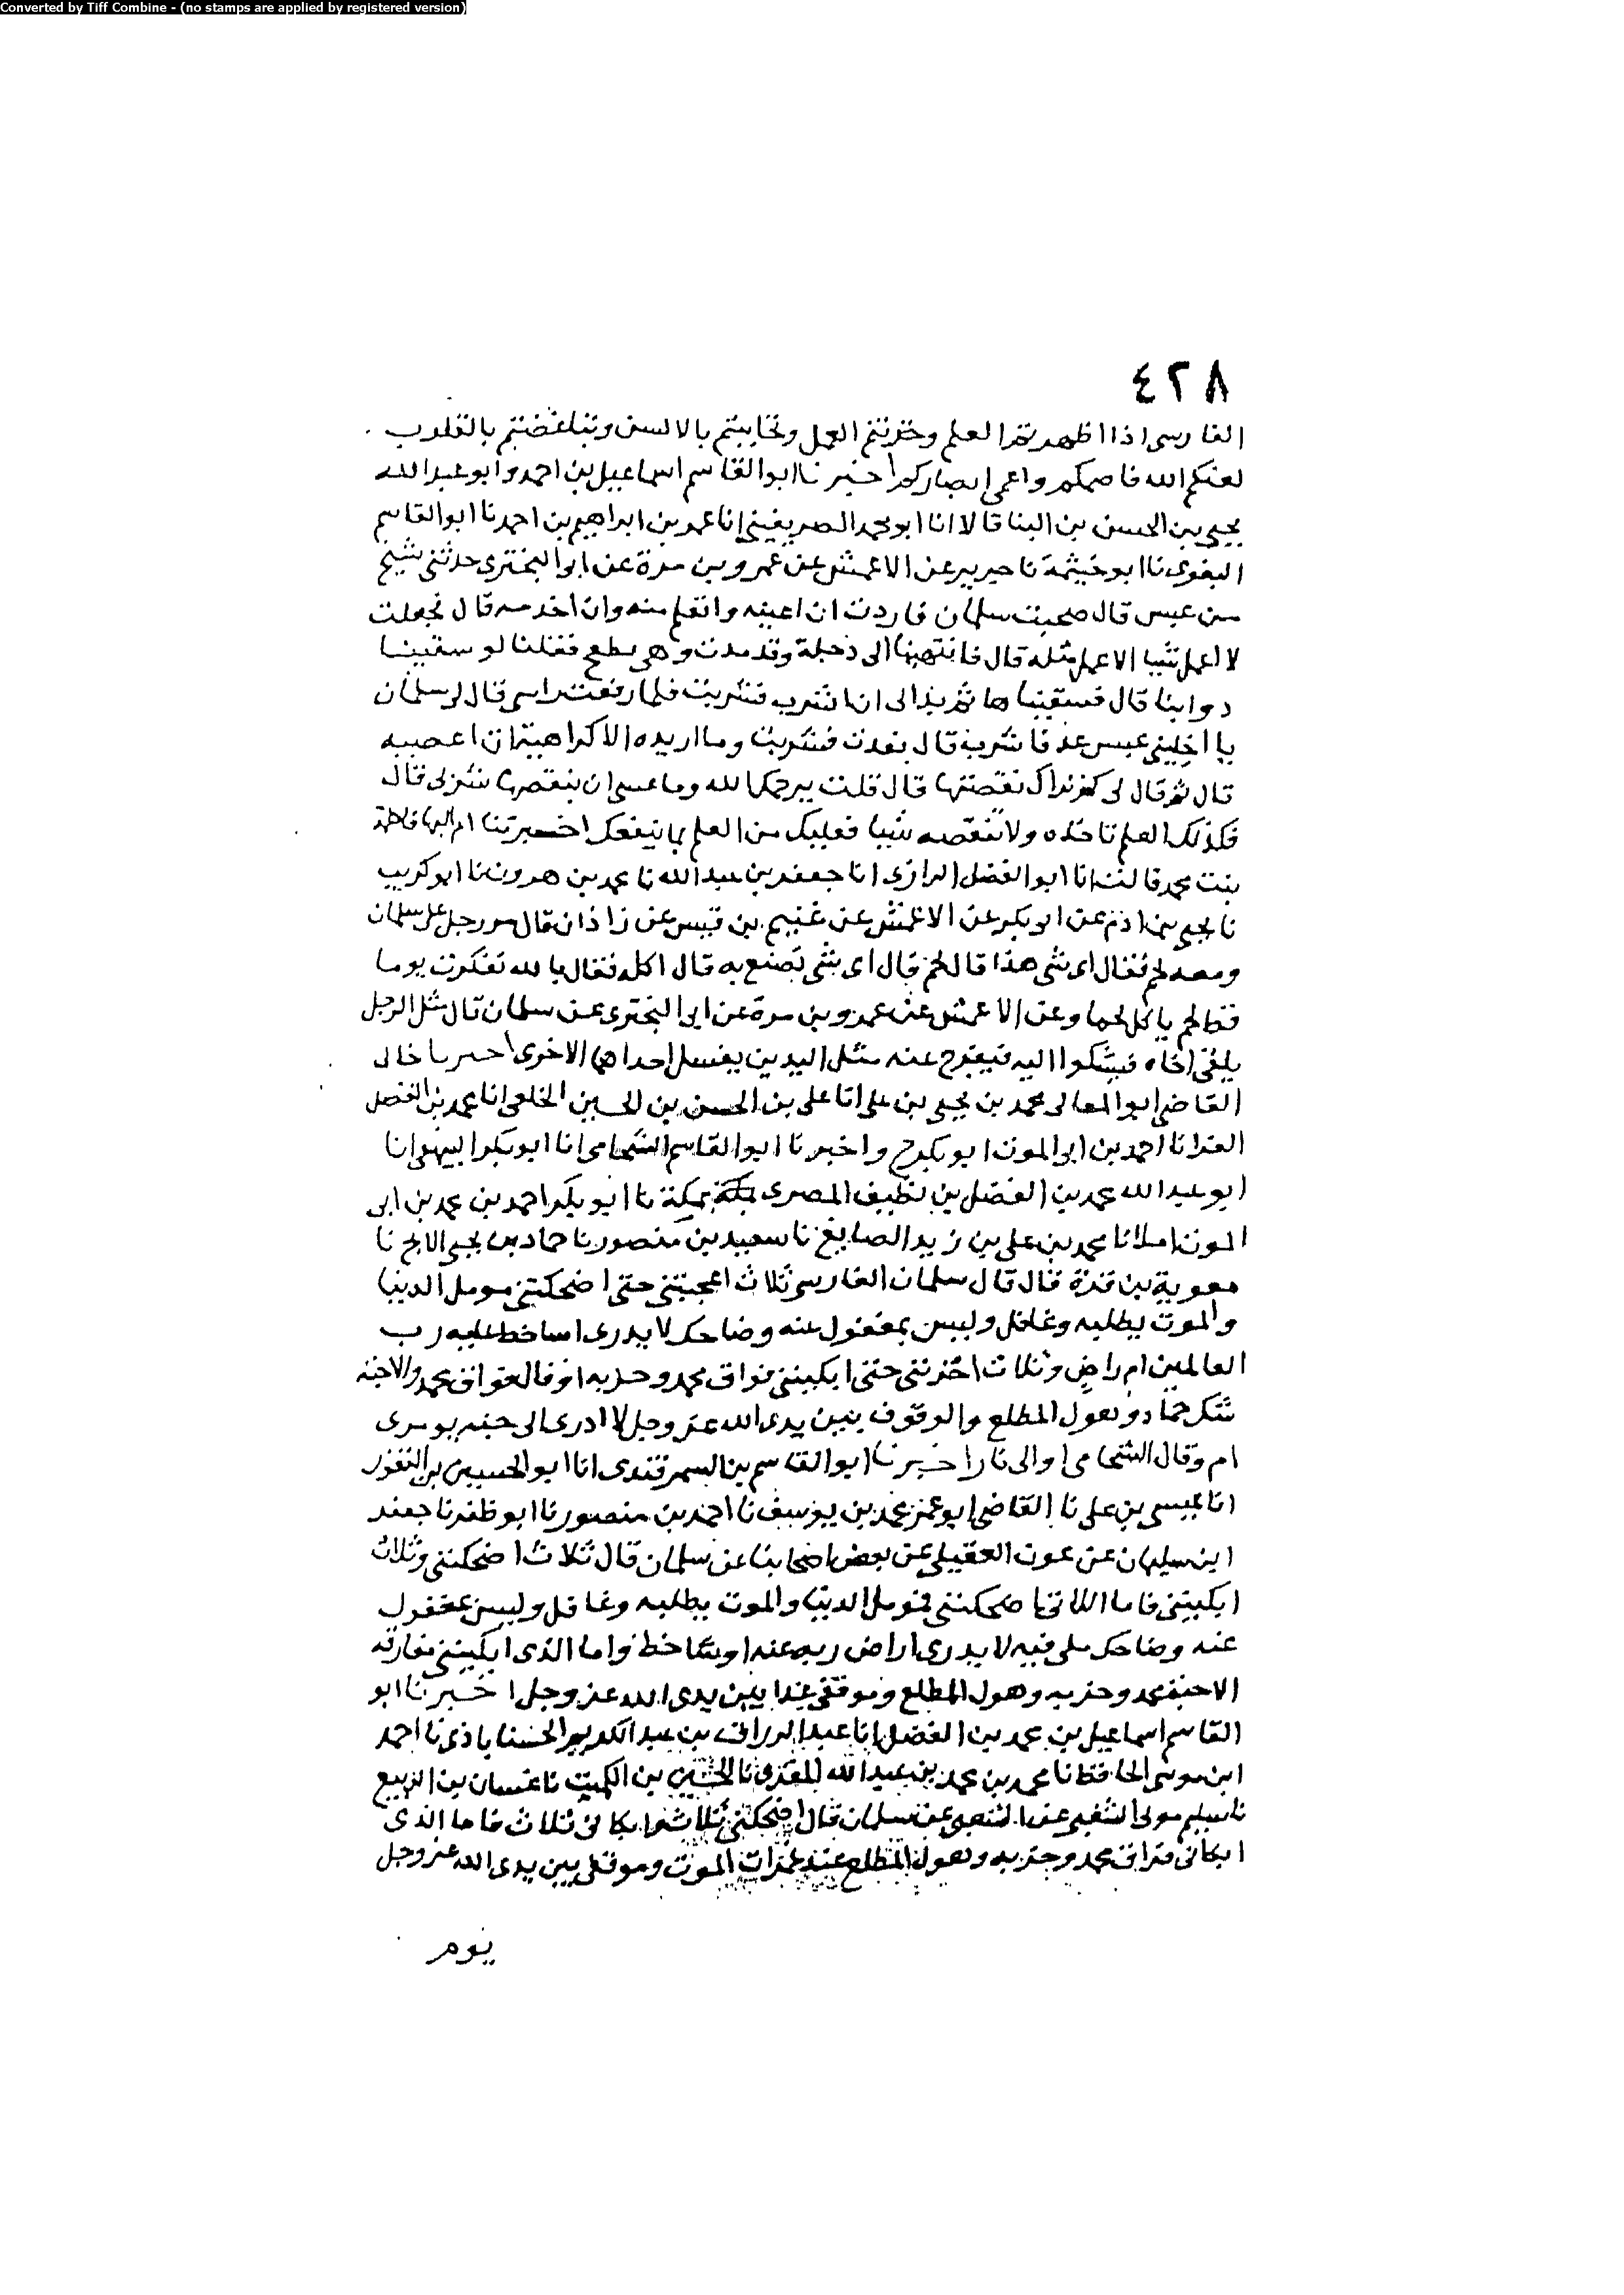 Converted by Tiff Combine - (no stamps are applied by registered version)
٤٢٨
الفارسى اذا اظهرتم العلم وخزنتم العمل وتحاببتم بالالسن وتباغضتم بالقلوب
لعنكم الله فاصمكم واعمى ابصاركم اخبرنا ابوالقاسم اسماعيل بن احمد وابو عبدالله
يحيى بن الحسن بن البنا قالا انا ابو محمد الصريفينى انا عمر بن ابراهيم بن احمد نا ابوالقاسم
البغوى نا ابو خيثمة نا جرير عن الاعمش عن عمرو بن مرة عن ابى البخترى حدثنى شيخ
من عبس قال صحبت سلمان فاردت ان اعينه واتعلم منه وان اخدمه قال فجعلت
لا اعمل شيا الا عمل مثله قال فانتهينا الى دجلة وقد مدت وهى تطفح فقلنا لو سقينا
دوابنا قال فسقيناها ثم بدا لى ان اشرب فشربت فلما رفعت راسى قال لى سلمان
يا اخا بنى عبس عد فاشرب قال فعدت فشربت وما اريده الا كراهية ان اعصيه
قال ثم قال لى كم تراك نقصتها قال قلت يرحمك الله وما عسى ان ينقصها شربى قال
فكذلك العلم تاخذه ولا تنقصه شيا فعليك من العلم بما ينفعك اخبرتنا ام البها فاطمة
بنت محمد قالت انا ابوالفضل الرازى انا جعفر بن عبدالله نا محمد بن هرون نا ابو كريب
نا يحيى بن ادم عن ابى بكر عن الاعمش عن غنيم بن قيس عن زاذان قال مر رجل على سلمان
ومعه لحم فقال اى شى هذا قال لحم قال اى شى تصنع به قال اكله فقال بالله تفكرت يوما
فطالحم ياكل لحما وعن الاعمش عن عمرو بن مرة عن ابى البخترى عن سلمان قال مثل الرجل
يلقى اخاه فيشكوا اليه فيفرج عنه مثل اليدين يغسل احداهما الاخرى اخبرنا خالى
القاضى ابوالمعالى محمد بن يحيى بن على انا على بن الحسن بن الحسين الخلعى انا محمد بن الفضل
الفرا نا احمد بن ابى الموت ابو بكر ح واخبرنا ابوالقاسم الشحامى انا ابوبكر البيهقى انا
ابو عبدالله محمد بن الفضل بن نظيف المصرى بمكة نا ابو بكر احمد بن محمد بن ابى
الموت املا نا محمد بن على بن زيد الصايغ نا سعيد بن منصور نا حماد بن يحيى الابح نا
معوية بن قرة قال قال سلمان الفارسى ثلاث اعجبتنى حتى اضحكتنى مومل الدنيا
والموت يطلبه وغافل وليس بمغفول عنه وضاحك لا يدرى اساخط عليه رب
العالمين ام راض وثلاث احزنتنى حتى ابكيننى فراق محمد وحزبه او قال فراق محمد والاحبة
شك حماد وهول المطلع والوقوف بين يدى الله عز وجل لا ادرى الى جنة يومرى
ام وقال الشحامى او الى نار اخبرنا ابوالقاسم بن السمرقندى انا ابوالحسين بن النقور
انا عيسى بن على نا القاضى ابو عمر محمد بن يوسف نا احمد بن منصور نا ابو ظفر نا جعفر
ابن سليمان عن عوف العقيلى عن بعض اصحابنا عن سلمان قال ثلاث اضحكتنى وثلاث
ابكيتنى فاما اللاتى اضحكتنى فمومل الدنيا والموت يطلبه وغافل وليس بمغفول
عنه وضاحك ملى فيه لا يدرى اراض ربه عنه او ساخط واما الذى ابكيننى مفارقة
الاحبة محمد وحزبه وهول المطلع وموقفى غدا بين يدى الله عز وجل اخبرنا ابو
القاسم اسماعيل بن محمد بن الفضل انا عبدالرزاق بن عبدالكريم الحسناباذى نا احمد
ابن موسى الحافظ نا محمد بن محمد بن عبيدالله المقرى نا الحسين بن الكميت نا غسان بن الربيع
نا سليم مولى الشعبى عن الشعبى عن سلمان قال اضحكنى ثلاث وابكانى ثلاث فاما الذى
ابكانى فراق محمد وحزبه وهول المطلع عند غمرات الموت وموقفى بين يدى الله عز وجل
يوم